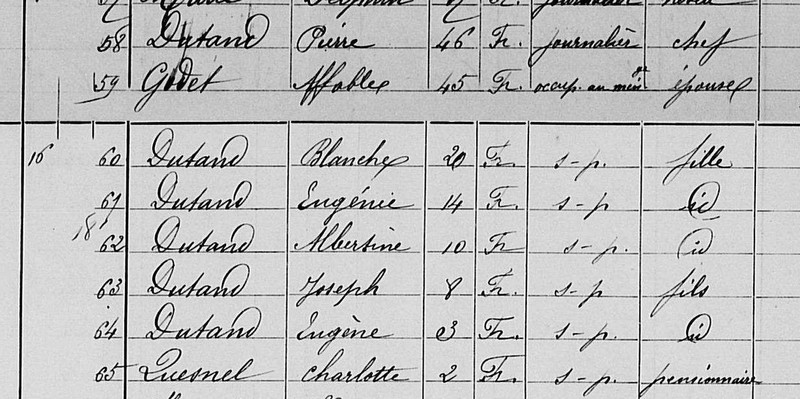 58 Dutand Pierre 46 Fr. journalier chef
59 Godet Affable 45 Fr. occup. au mén.ge épouse
16 60 Dutand Blanche 20 Fr. s-p. fille
61 Dutand Eugénie 14 Fr. s-p id
18
62 Dutand Albertine 10 Fr s-p. id
63 Dutand Joseph 8 Fr. s-p fils
64 Dutand Eugène 3 Fr. s-p. id
65 Quesnel Charlotte 2 Fr. s-p. pensionnaire